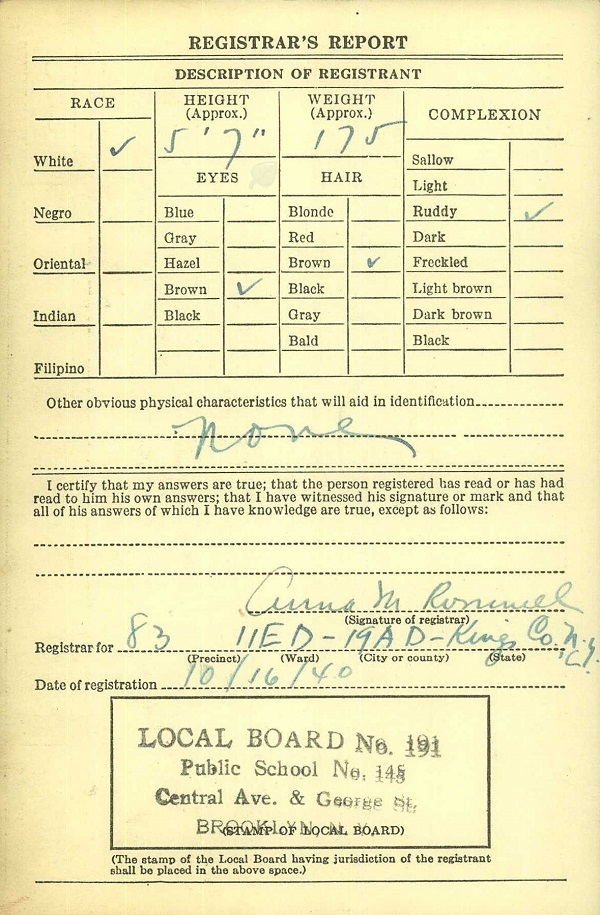 REGISTRAR'S REPORT
DESCRIPTION OF REGISTRANT
RACE
HEIGHT
(Approx.)
WEIGHT
(Approx.)
COMPLEXION
5'7"
175
White ✓
Negro
Oriental
Indian
Filipino
EYES
Blue
Gray
Hazel
Brown ✓
Black
HAIR
Blonde
Red
Brown ✓
Black
Gray
Bald
Sallow
Light
Ruddy ✓
Dark
Freckled
Light brown
Dark brown
Black
Other obvious physical characteristics that will aid in identification
None
I certify that my answers are true; that the person registered has read or has had
read to him his own answers; that I have witnessed his signature or mark and that
all of his answers of which I have knowledge are true, except as follows:
Anna M
(Signature of registrar)
Registrar for 83 11ED-19AD-Kings Co. N.Y.
(Precinct) (Ward) (City or county) (State)
Date of registration 10/16/40
LOCAL BOARD No. 191
Public School No. 145
Central Ave. & George St.
BROOKLYN, N. Y.
(STAMP OF LOCAL BOARD)
(The stamp of the Local Board having jurisdiction of the registrant
shall be placed in the above space.)